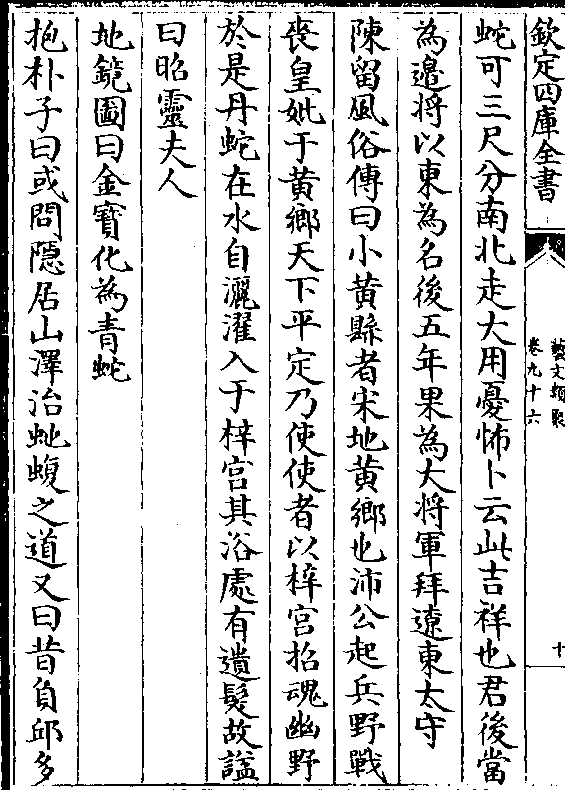 欽定四庫全書
藝文類聚
卷九十六
十
蛇可三尺分南北走大用憂怖卜云此吉祥也君後當
為邉将以東為名後五年果為大将軍拜遼東太守
陳留風俗傳曰小黄縣者宋地黄鄉也沛公起兵野戰
喪皇妣于黄鄉天下平定乃使使者以梓宫招魂幽野
於是丹蛇在水自灑濯入于梓宫其浴處有遺髮故諡
曰昭靈夫人
地鏡圖曰金寳化為青蛇
抱朴子曰或問隠居山澤治蚍蝮之道又曰昔負邱多